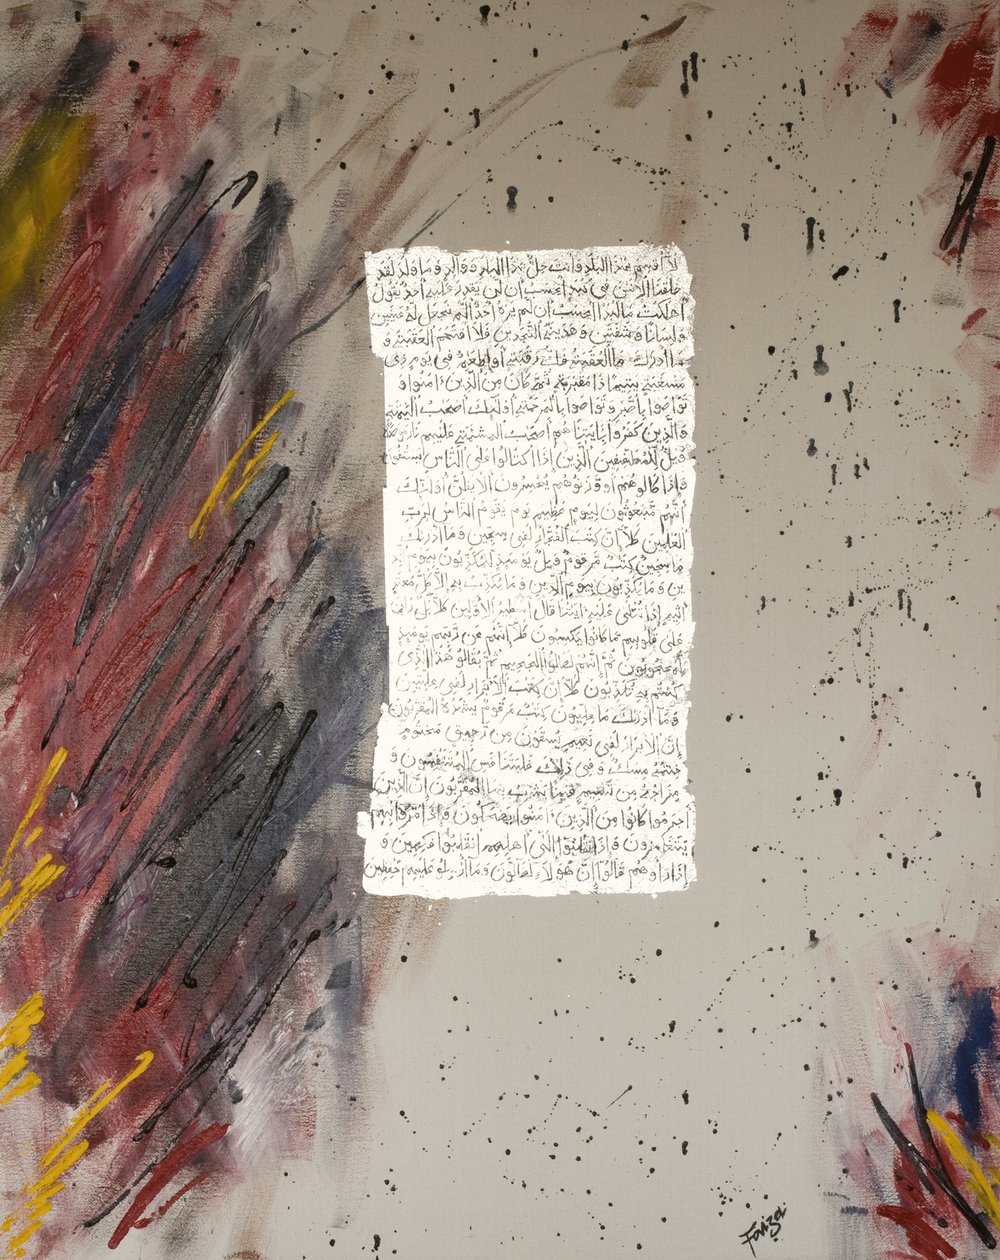 لا أقسم بهذا البلد وأنت حل بهذا البلد ووالد وما ولد لقد
خلقنا الإنسن في كبد أيحسب أن لن يقدر عليه أحد يقول
أهلكت مالا لبدا أيحسب أن لم يره أحد ألم نجعل له عينين
ولسانا وشفتين وهدينه النجدين فلا اقتحم العقبة و
ما أدرىك ما العقبة فك رقبة أو إطعم في يوم ذي
مسغبة يتيما ذا مقربة ثم كان من الذين ءامنوا و
تواصوا بالصبر وتواصوا بالمرحمة أولئك أصحب الميمنة
والذين كفروا بايتنا هم أصحب المشئمة عليهم نار موصدة
ويل للمطففين الذين إذا اكتالوا على الناس يستوفون
وإذا كالوهم أو وزنوهم يخسرون ألا يظن أولئك
أنهم مبعوثون ليوم عظيم يوم يقوم الناس لرب
العلمين كلا إن كتب الفجار لفي سجين وما أدرىك
ما سجين كتب مرقوم ويل يومئذ للمكذبين الذ
ين يكذبون بيوم الدين وما يكذب به إلا كل معتد
أثيم إذا تتلى عليه ءايتنا قال أسطير الأولين كلا بل ران
على قلوبهم ما كانوا يكسبون كلا إنهم عن ربهم يومئذ
لمحجوبون ثم إنهم لصالوا الجحيم ثم يقال هذا الذي
كنتم به تكذبون كلا إن كتب الأبرار لفي عليين
وما أدرىك ما عليون كتب مرقوم يشهده المقربون
إن الأبرار لفي نعيم يسقون من رحيق مختوم
ختمه مسك وفي ذلك فليتنافس المتنفسون و
مزاجه من تسنيم عينا يشرب بها المقربون إن الذين
أجرموا كانوا من الذين ءامنوا يضحكون وإذا مروا بهم
يتغامزون وإذا انقلبوا إلى أهلهم انقلبوا فكهين و
إذا رأوهم قالوا إن هؤلاء لضالون وما أرسلوا عليهم حفظين
Faiza